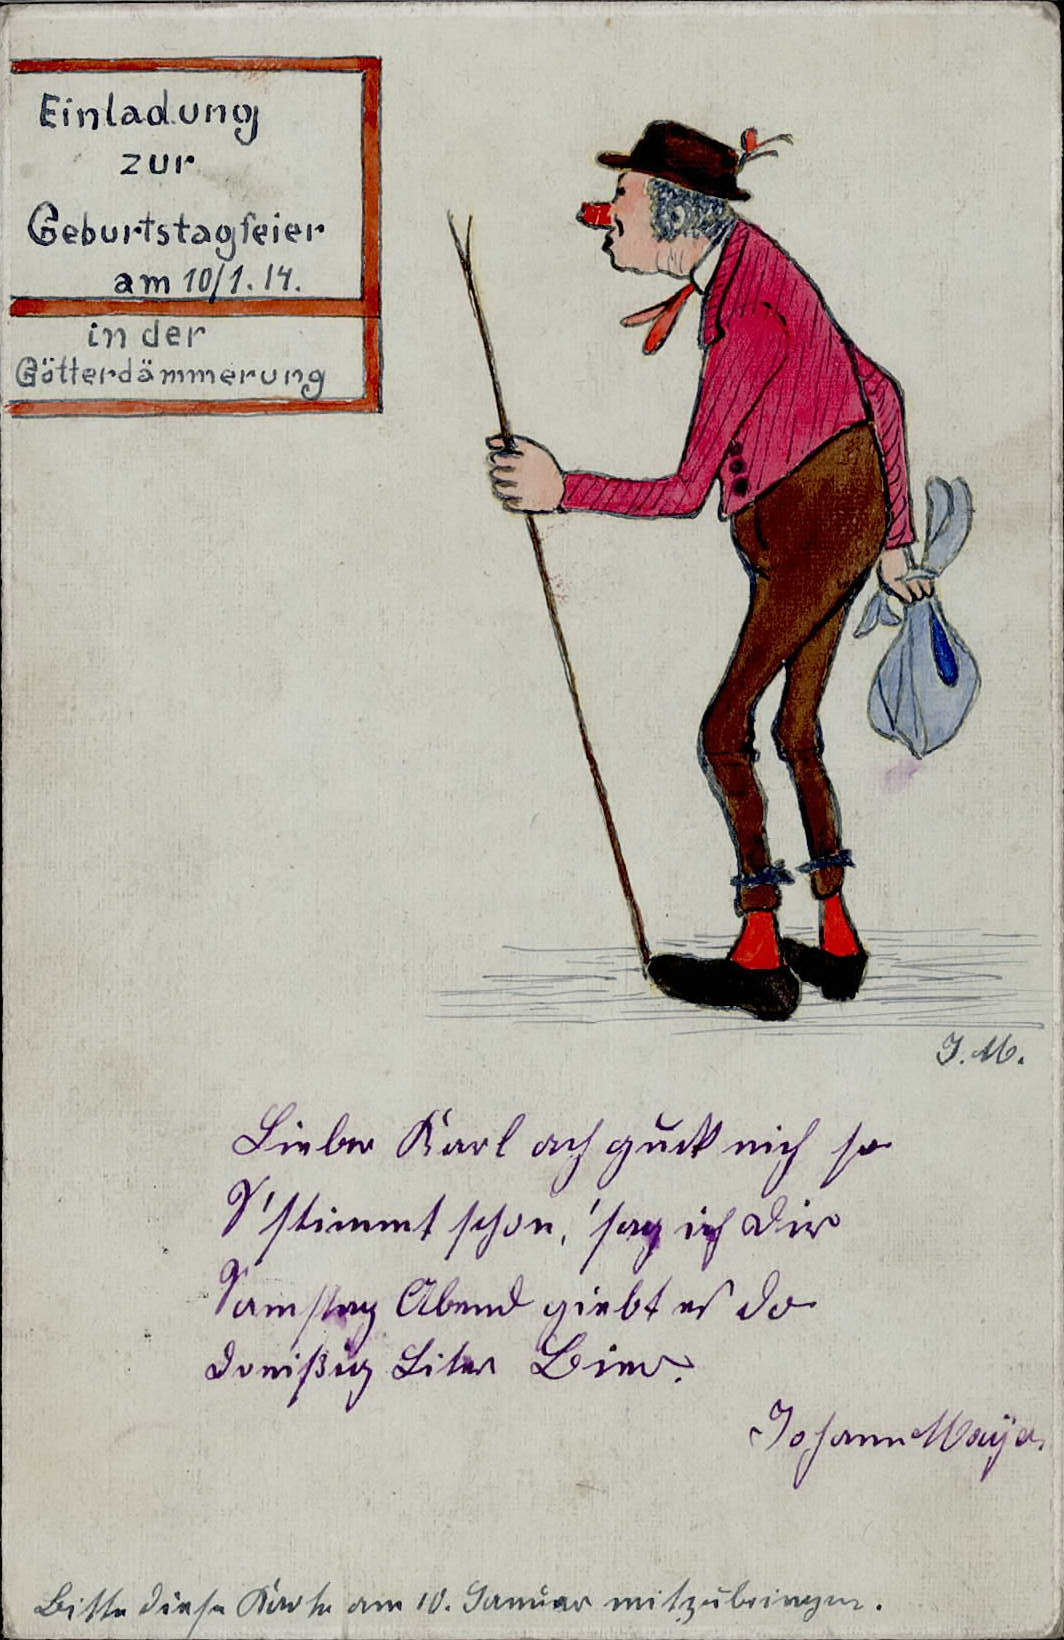 Einladung
zur
Geburtstagfeier
am 10/1.14.
in der
Götterdämmerung
J. M.
Lieber Karl ach guck nich so
S'stimmt schon, 'sag ich Dir
Samstag Abend giebt es do
Dreißig Liter Bier.
Johann
Bitte diese Karte am 10. Januar mitzubringen.